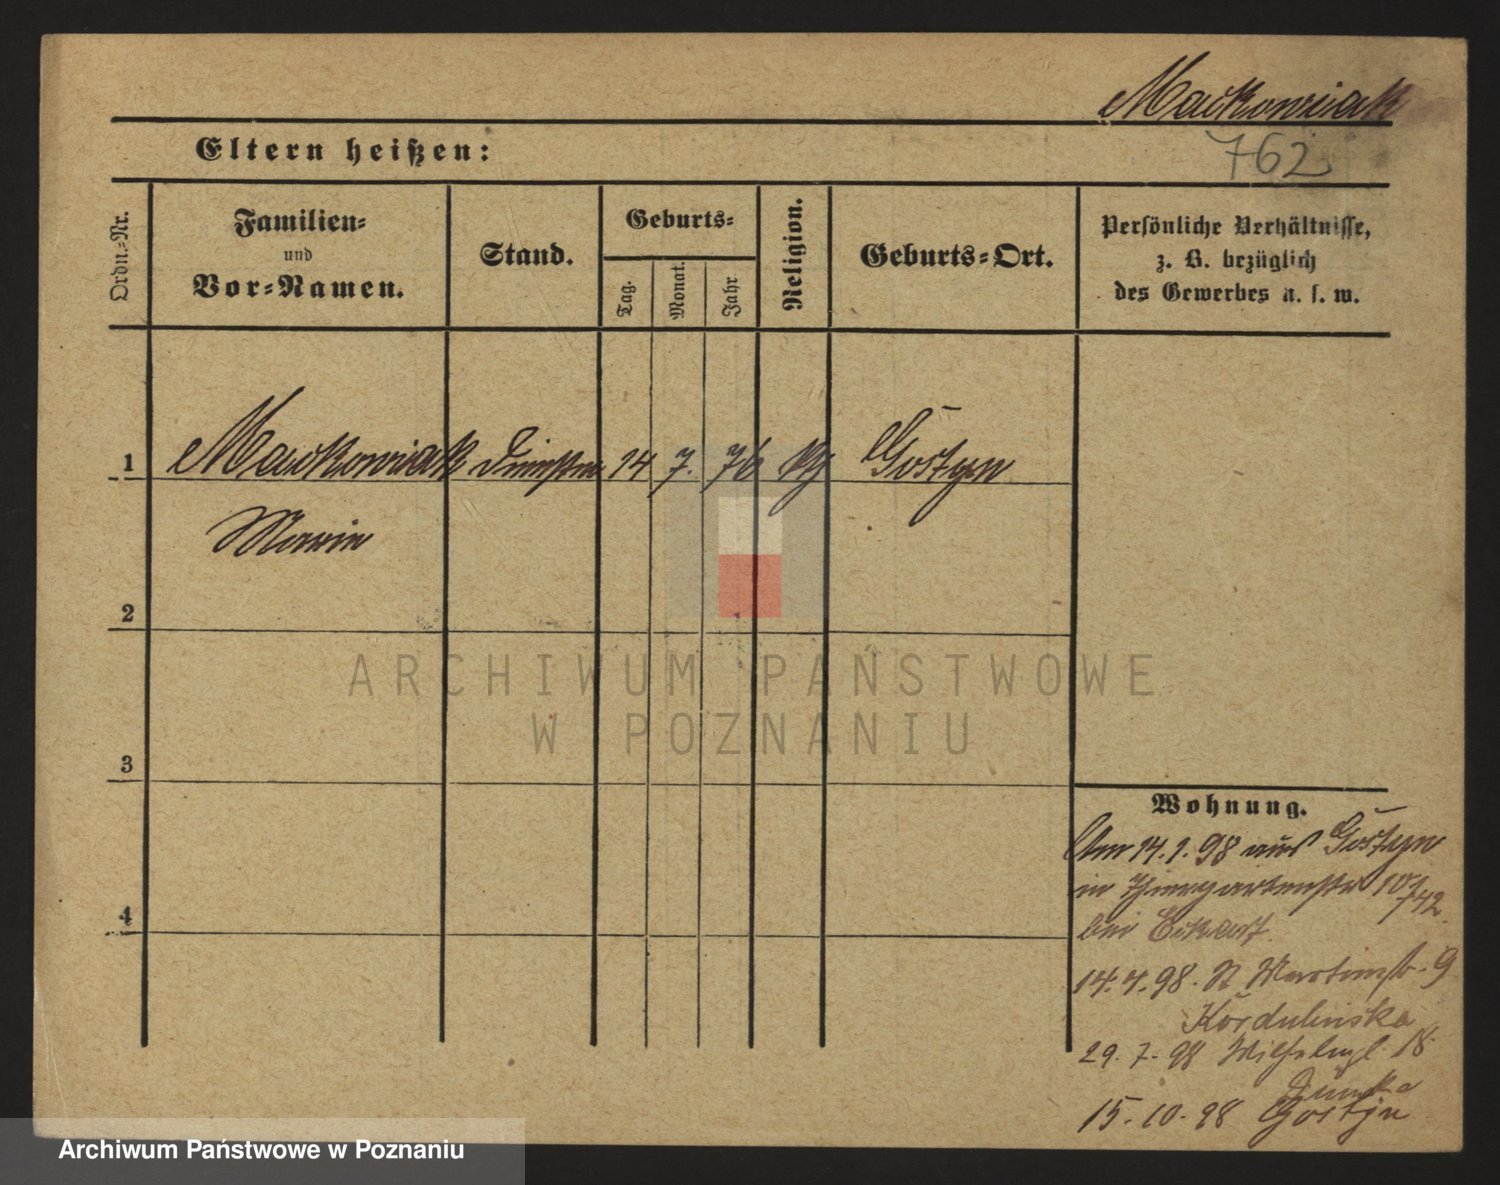 Mackowiak
762
Eltern heißen:
Ordn.-Nr.
Familien-
und
Vor-Namen.
Stand.
Geburts-
Tag.
Monat.
Jahr
Religion.
Geburts-Ort.
Persönliche Verhältnisse,
z. B. bezüglich
des Gewerbes u. s. w.
1 Mackowiak 14 7. 76 Gostyn
Marie
2
ARCHIWUM PAŃSTWOWE
W POZNANIU
3
4
Wohnung.
Am 14.1.98 aus Gostyn
in Thiergartenstr 10
bei Eckart.
14.4.98. St Martinstr. 9
Kordulinska
29.7.98 Wilhelmpl. 18
15.10.98 Gostyn
Archiwum Państwowe w Poznaniu